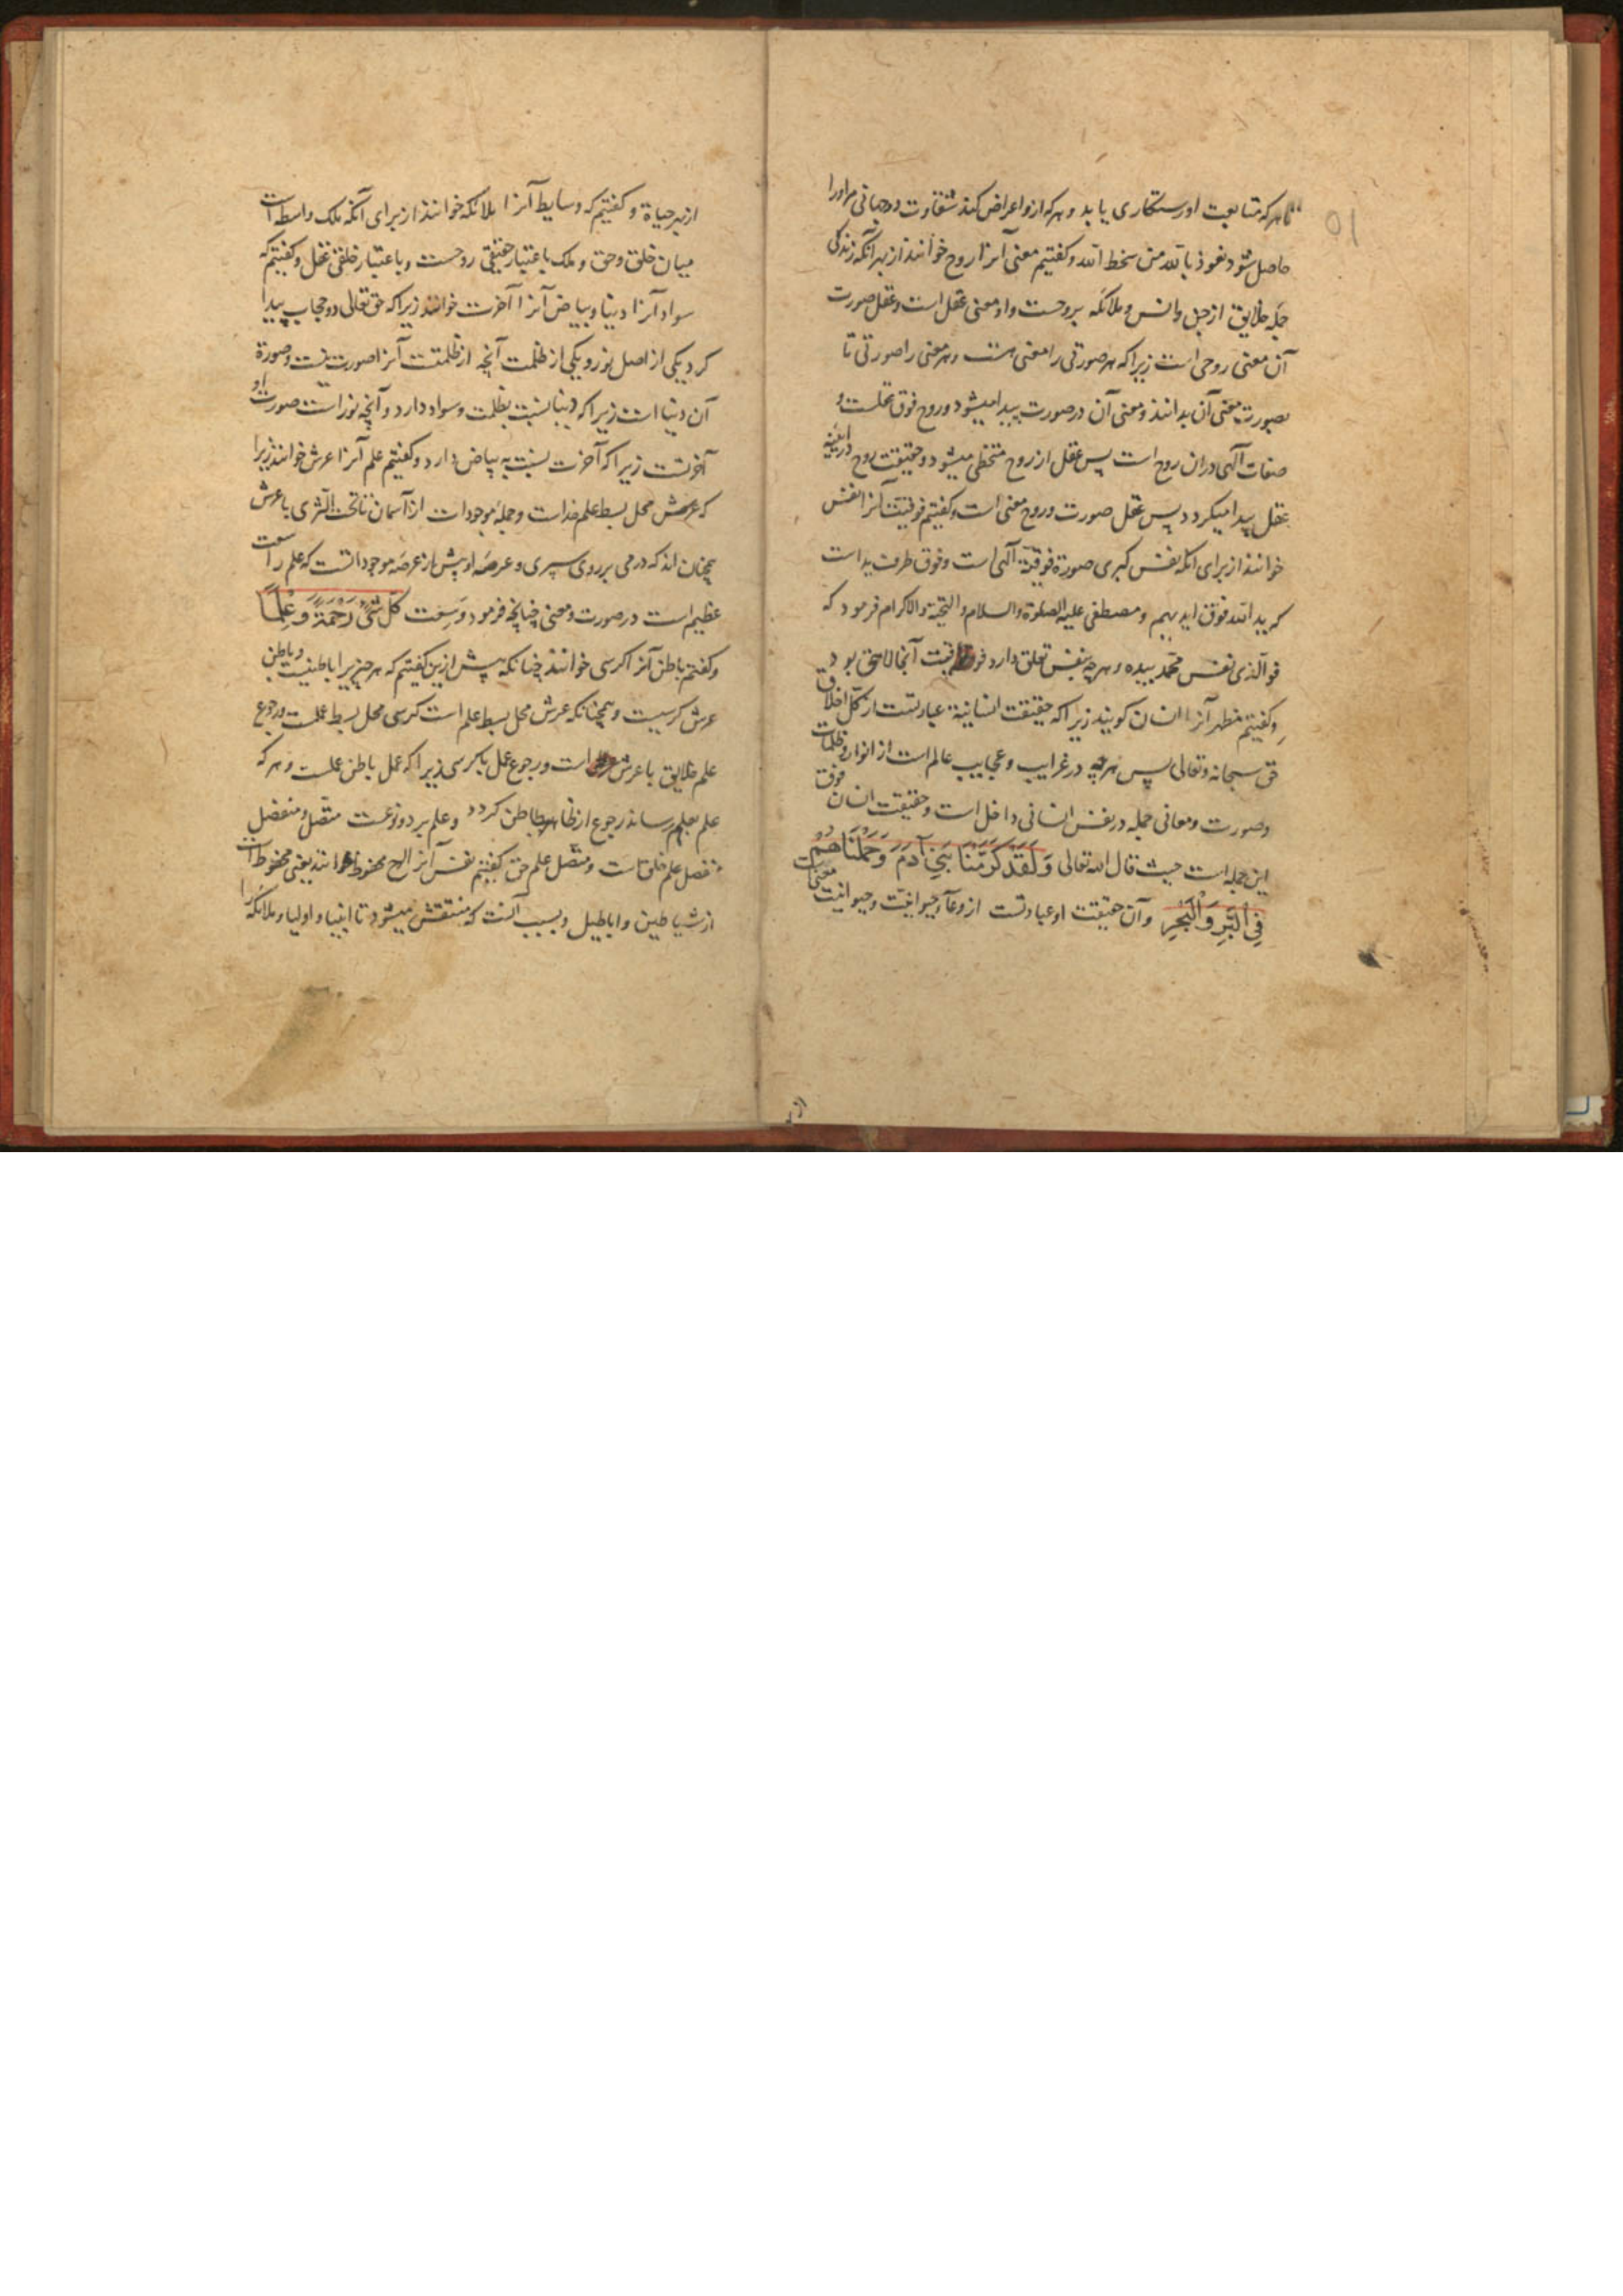 تا هر که متابعت او رستکاری یابد و هر که ازو اعراض کند شقاوت دوجهانی مر اورا
حاصل شود نعوذ بالله من سخط الله و کفتیم معنی آنرا روح خوانند از بهر آنکه زندکی
جمله خلایق از جن و انس و ملائکه بروحست و او معنی عقل است و عقل صورت
آن معنی روحی است زیرا که هر صورتی را معنی هست و هر معنی را صورتی تا
بصورت معنی آن بدانند و معنی آن در صورت پیدا میشود و روح فوق عقلست و
صفات آلهی دران روح است پس عقل از روح متحظی میشود و حقیقت روح در آینه
عقل پیدا میکردد پس عقل صورت و روح معنی است و کفتیم فوقیت آنرا نفس
خوانند از برای انکه نفس کبری صورة فوقیة آلهی است و فوق طرف ید است
که ید الله فوق ایدیهم و مصطفی علیه الصلوة والسلام والتحیة والاکرام فرمود که
فو آلذی نفس محمد بیده و هر چه بنفس تعلق دارد آنجا لاحق بود
و کفتیم مظهر آنرا انسان کویند زیرا که حقیقت انسانیة عبارتست از کل اخلاق
حق سبحانه و تعالی پس هر چه در غرایب و عجایب عالم است از انوار و ظلمات
وصورت و معانی جمله در نفس انسانی داخل است و حقیقت انسان فوق
این جمله است حیث قال الله تعالی وَلَقَدْ كَرَّمْنَا بَنِي آدَمَ وَحَمَلْنَاهُمْ
فِي الْبَرِّ وَالْبَحْرِ و آن حقیقت او عبارتست از وعآء حیوانیت و حیوانیت معنی است
از بهر حیاة و کفتیم که وسایط آنرا ملائکه خوانند از برای آنکه ملک واسطه است
میان خلق و حق و ملک باعتبار حقیقی روحست و باعتبار خلقی عقل و کفتیم که
سواد آنرا دنیا و بیاض آنرا آخرت خوانند زیرا که حق تعالی دو حجاب پیدا
کرد یکی از اصل نور و یکی از ظلمت آنچه از ظلمتست آنرا صورت نیست و صورة
آن دنیا است زیرا که دنیا نسبت بظلمت و سواد دارد و آنچه نور است صورت او
آخرتست زیرا که آخرت نسبت به بیاض دارد و کفتیم علم آنرا عرش خوانند زیرا
که عرش محل بسط علم خداست و جمله موجودات از آسمان تا تحت الثری با عرش
همچنان اند که درمی بر روی سپری و عرصه او بیش از عرصه موجوداتست که علم را سعت
عظیم است در صورت و معنی چنانچه فرمود وَسِعْت كُلَّ شَيْءٍ رَحْمَةً وَعِلْمًا
و کفتیم باطن آنرا کرسی خوانند چنانکه پیش ازین کفتیم که هر چیزیرا باطنیست و باطن
عرش کرسیست و همچنانکه عرش محل بسط علم است کرسی محل بسط عملست و رجوع
علم خلایق با عرش است و رجوع عمل با کرسی زیرا که عمل باطن علمست و هر که
علم بعلم رساند رجوع از ظاهر بباطن کردد و علم بر دو نوعست متصل و منفصل
منفصل علم خلق است و متصل علم حق کفتیم نفس آنرا لوح محفوظ خوانند یعنی محفوظ است
از شیاطین و اباطیل و بسبب آنست که منتقش میشود تا انبیا و اولیا و ملائکه را